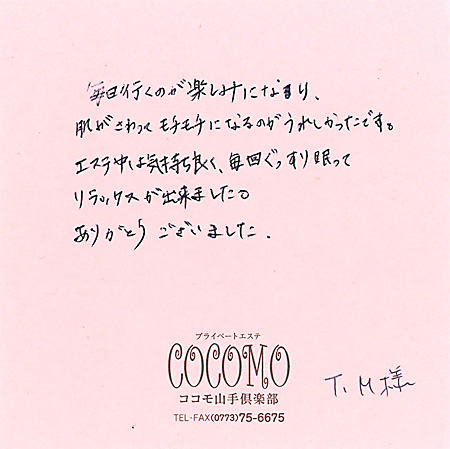 毎日行くのが楽しみになまり、
肌がさわってモチモチになるのがうれしかったです。
エステ中は気持ち良く、毎回ぐっすり眠って
リラックスが出来ました。
ありがとうございました。
プライベートエステ
COCOMO
ココモ山手倶楽部
TEL・FAX(0773)75-6675
T.M様